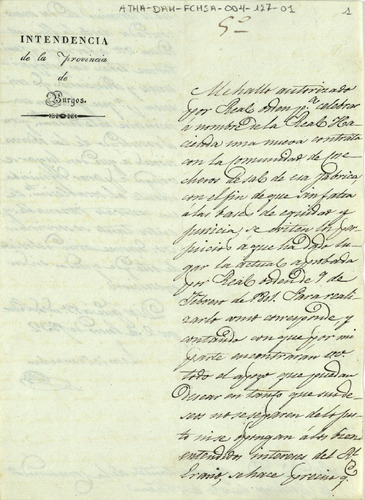 ATHA-DAH-FCHSA-004-127-01
1
5º
INTENDENCIA
de la Provincia
de
Burgos.
Me hallo autorizado
por Real orden pª celebrar
a nombre de la Real Ha
cienda una nueva contrata
con la comunidad de cose
cheros de sal de esa fabrica,
con el fin de que sin faltar
a las bases de equidad y
justicia, se eviten los per
juicios a que ha dado lu
gar la actual aprobada
por Real orden de 9 de
Febrero de 1801. Para reali
zarlo como corresponde y
contando con que por mi
parte encontraran VV.
todo el apoyo que puedan
desear en tanto que sus de
seos no se separen de lo jus
to ni se opongan á los bien
entendidos intereses del Rl
Erario, se hace preciso q.e